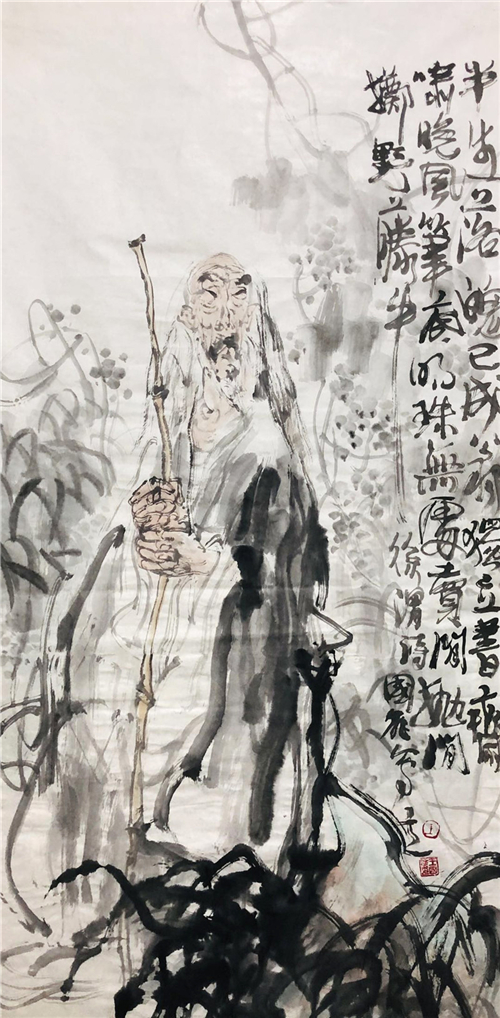 半生落魄已成翁獨立書齋
嘯晚風筆底明珠無處賣閒抛閒
擲野藤中
徐渭詩國